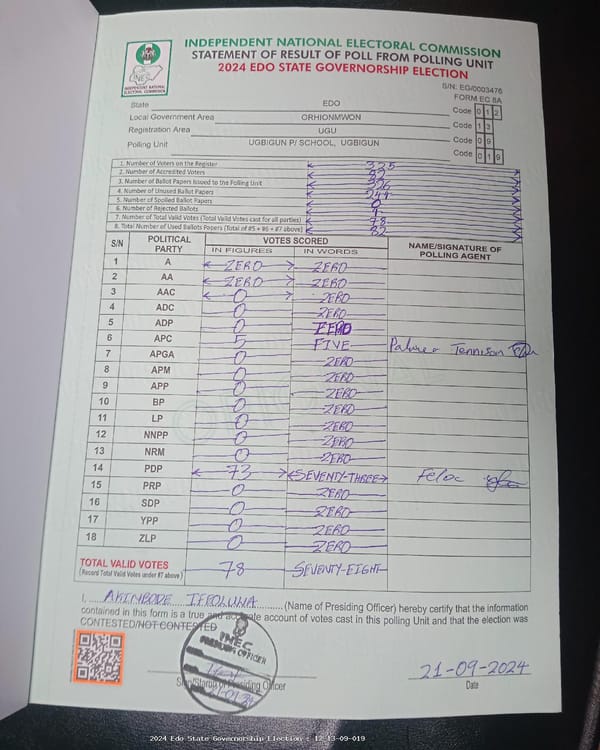 INDEPENDENT NATIONAL ELECTORAL COMMISSION
STATEMENT OF RESULT OF POLL FROM POLLING UNIT
2024 EDO STATE GOVERNORSHIP ELECTION
INEC
INDEPENDENT NATIONAL ELECTORAL COMMISSION
S/N: EG/0003476
FORM EC 8A
State EDO Code 0 1 2
Local Government Area ORHIONMWON Code 1 3
Registration Area UGU Code 0 9
Polling Unit UGBIGUN P/ SCHOOL, UGBIGUN Code 0 1 9
1. Number of Voters on the Register 325
2. Number of Accredited Voters 82
3. Number of Ballot Papers Issued to the Polling Unit
4. Number of Unused Ballot Papers
5. Number of Spoiled Ballot Papers 0
6. Number of Rejected Ballots
7. Number of Total Valid Votes (Total Valid Votes cast for all parties) 78
8. Total Number of Used Ballots Papers (Total of #5 + #6 + #7 above) 82
S/N POLITICAL PARTY VOTES SCORED NAME/SIGNATURE OF POLLING AGENT
IN FIGURES IN WORDS
1 A ZERO ZERO
2 AA ZERO ZERO
3 AAC 0 ZERO
4 ADC 0 ZERO
5 ADP 0 ZERO
6 APC 5 FIVE Tennison
7 APGA 0 ZERO
8 APM 0 ZERO
9 APP 0 ZERO
10 BP 0 ZERO
11 LP 0 ZERO
12 NNPP 0 ZERO
13 NRM 0 ZERO
14 PDP 73 SEVENTY-THREE
15 PRP 0 ZERO
16 SDP 0 ZERO
17 YPP 0 ZERO
18 ZLP 0 ZERO
TOTAL VALID VOTES 78 SEVENTY-EIGHT
(Record Total Valid Votes under #7 above)
I, AKINBODE IFEOLUWA (Name of Presiding Officer) hereby certify that the information
contained in this form is a true and accurate account of votes cast in this polling Unit and that the election was
CONTESTED/NOT CONTESTED
INEC
PRESIDING OFFICER
21-09-2024
Sign/Stamp of Presiding Officer Date
2024 Edo State Governorship Election : 12-13-09-019